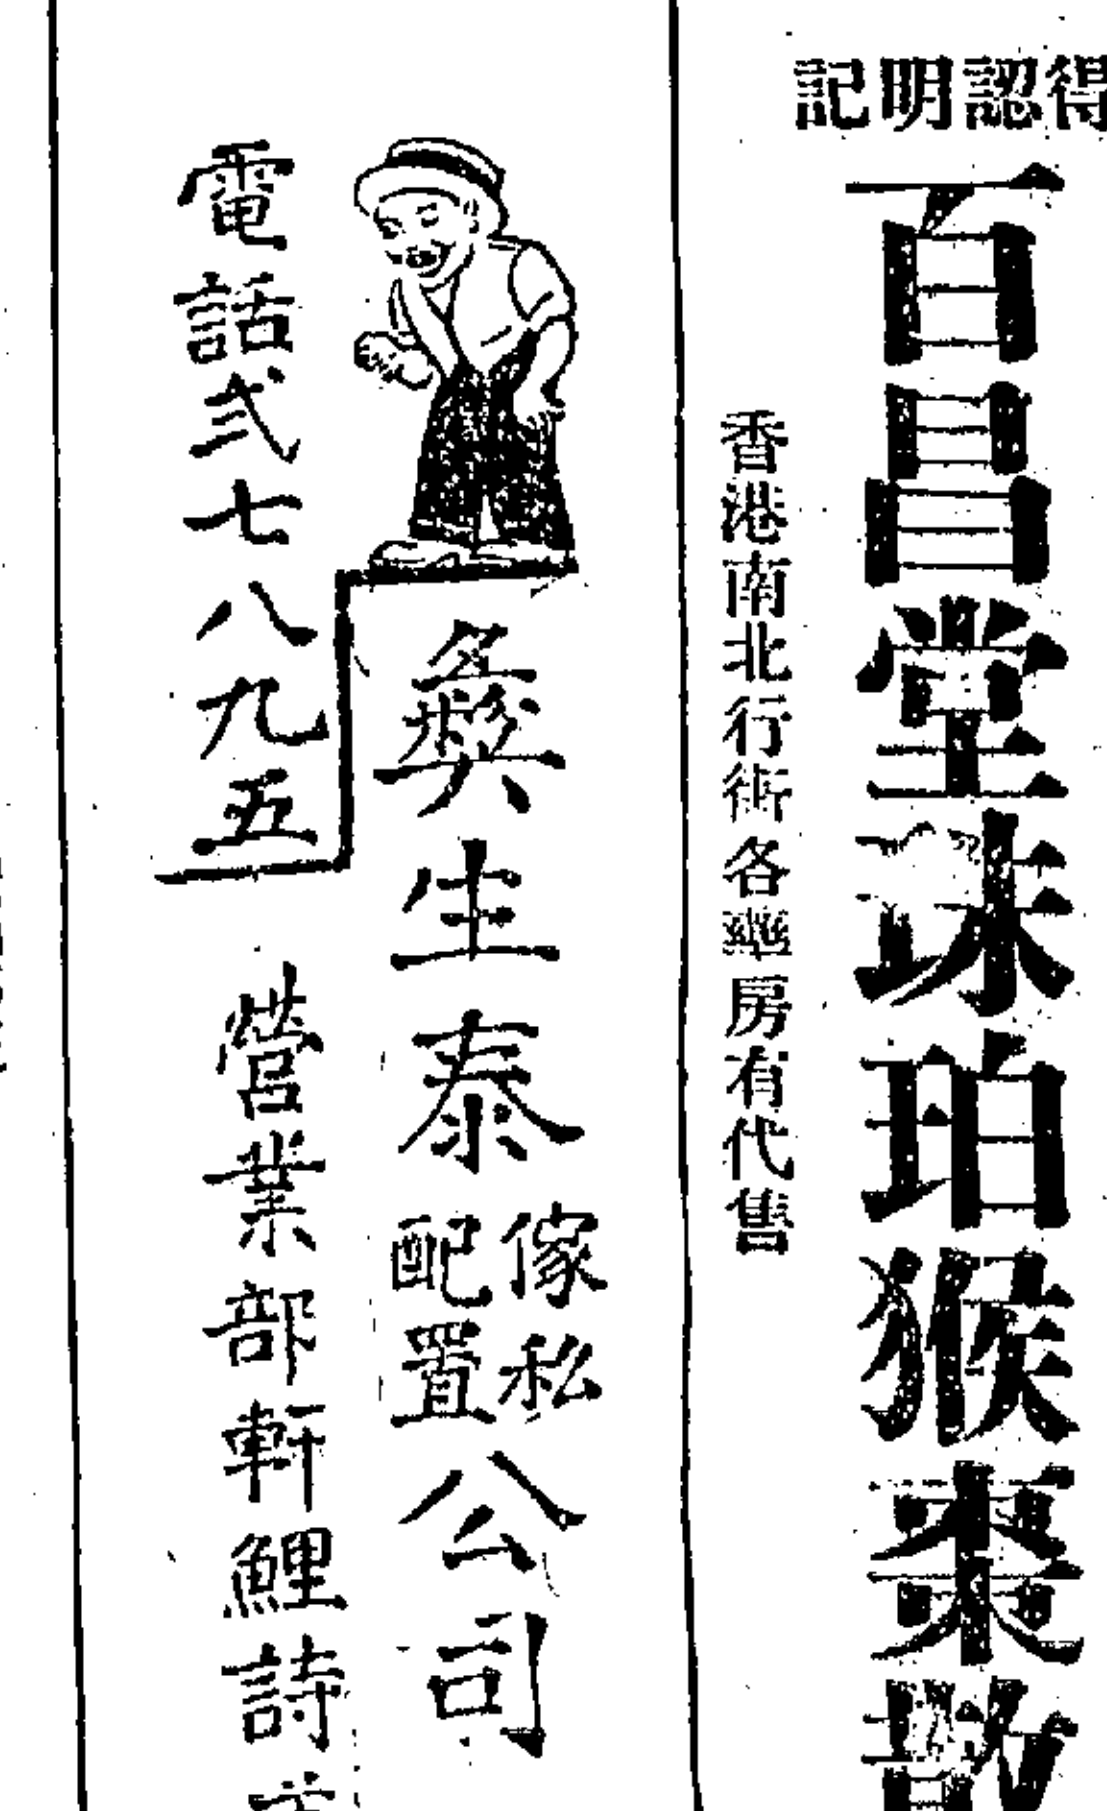 記明認得
百昌堂珠珀猴棗散
香港南北行街各藥房有代售
彝生泰傢私配置公司
電話弍七八九五
營業部軒鯉詩